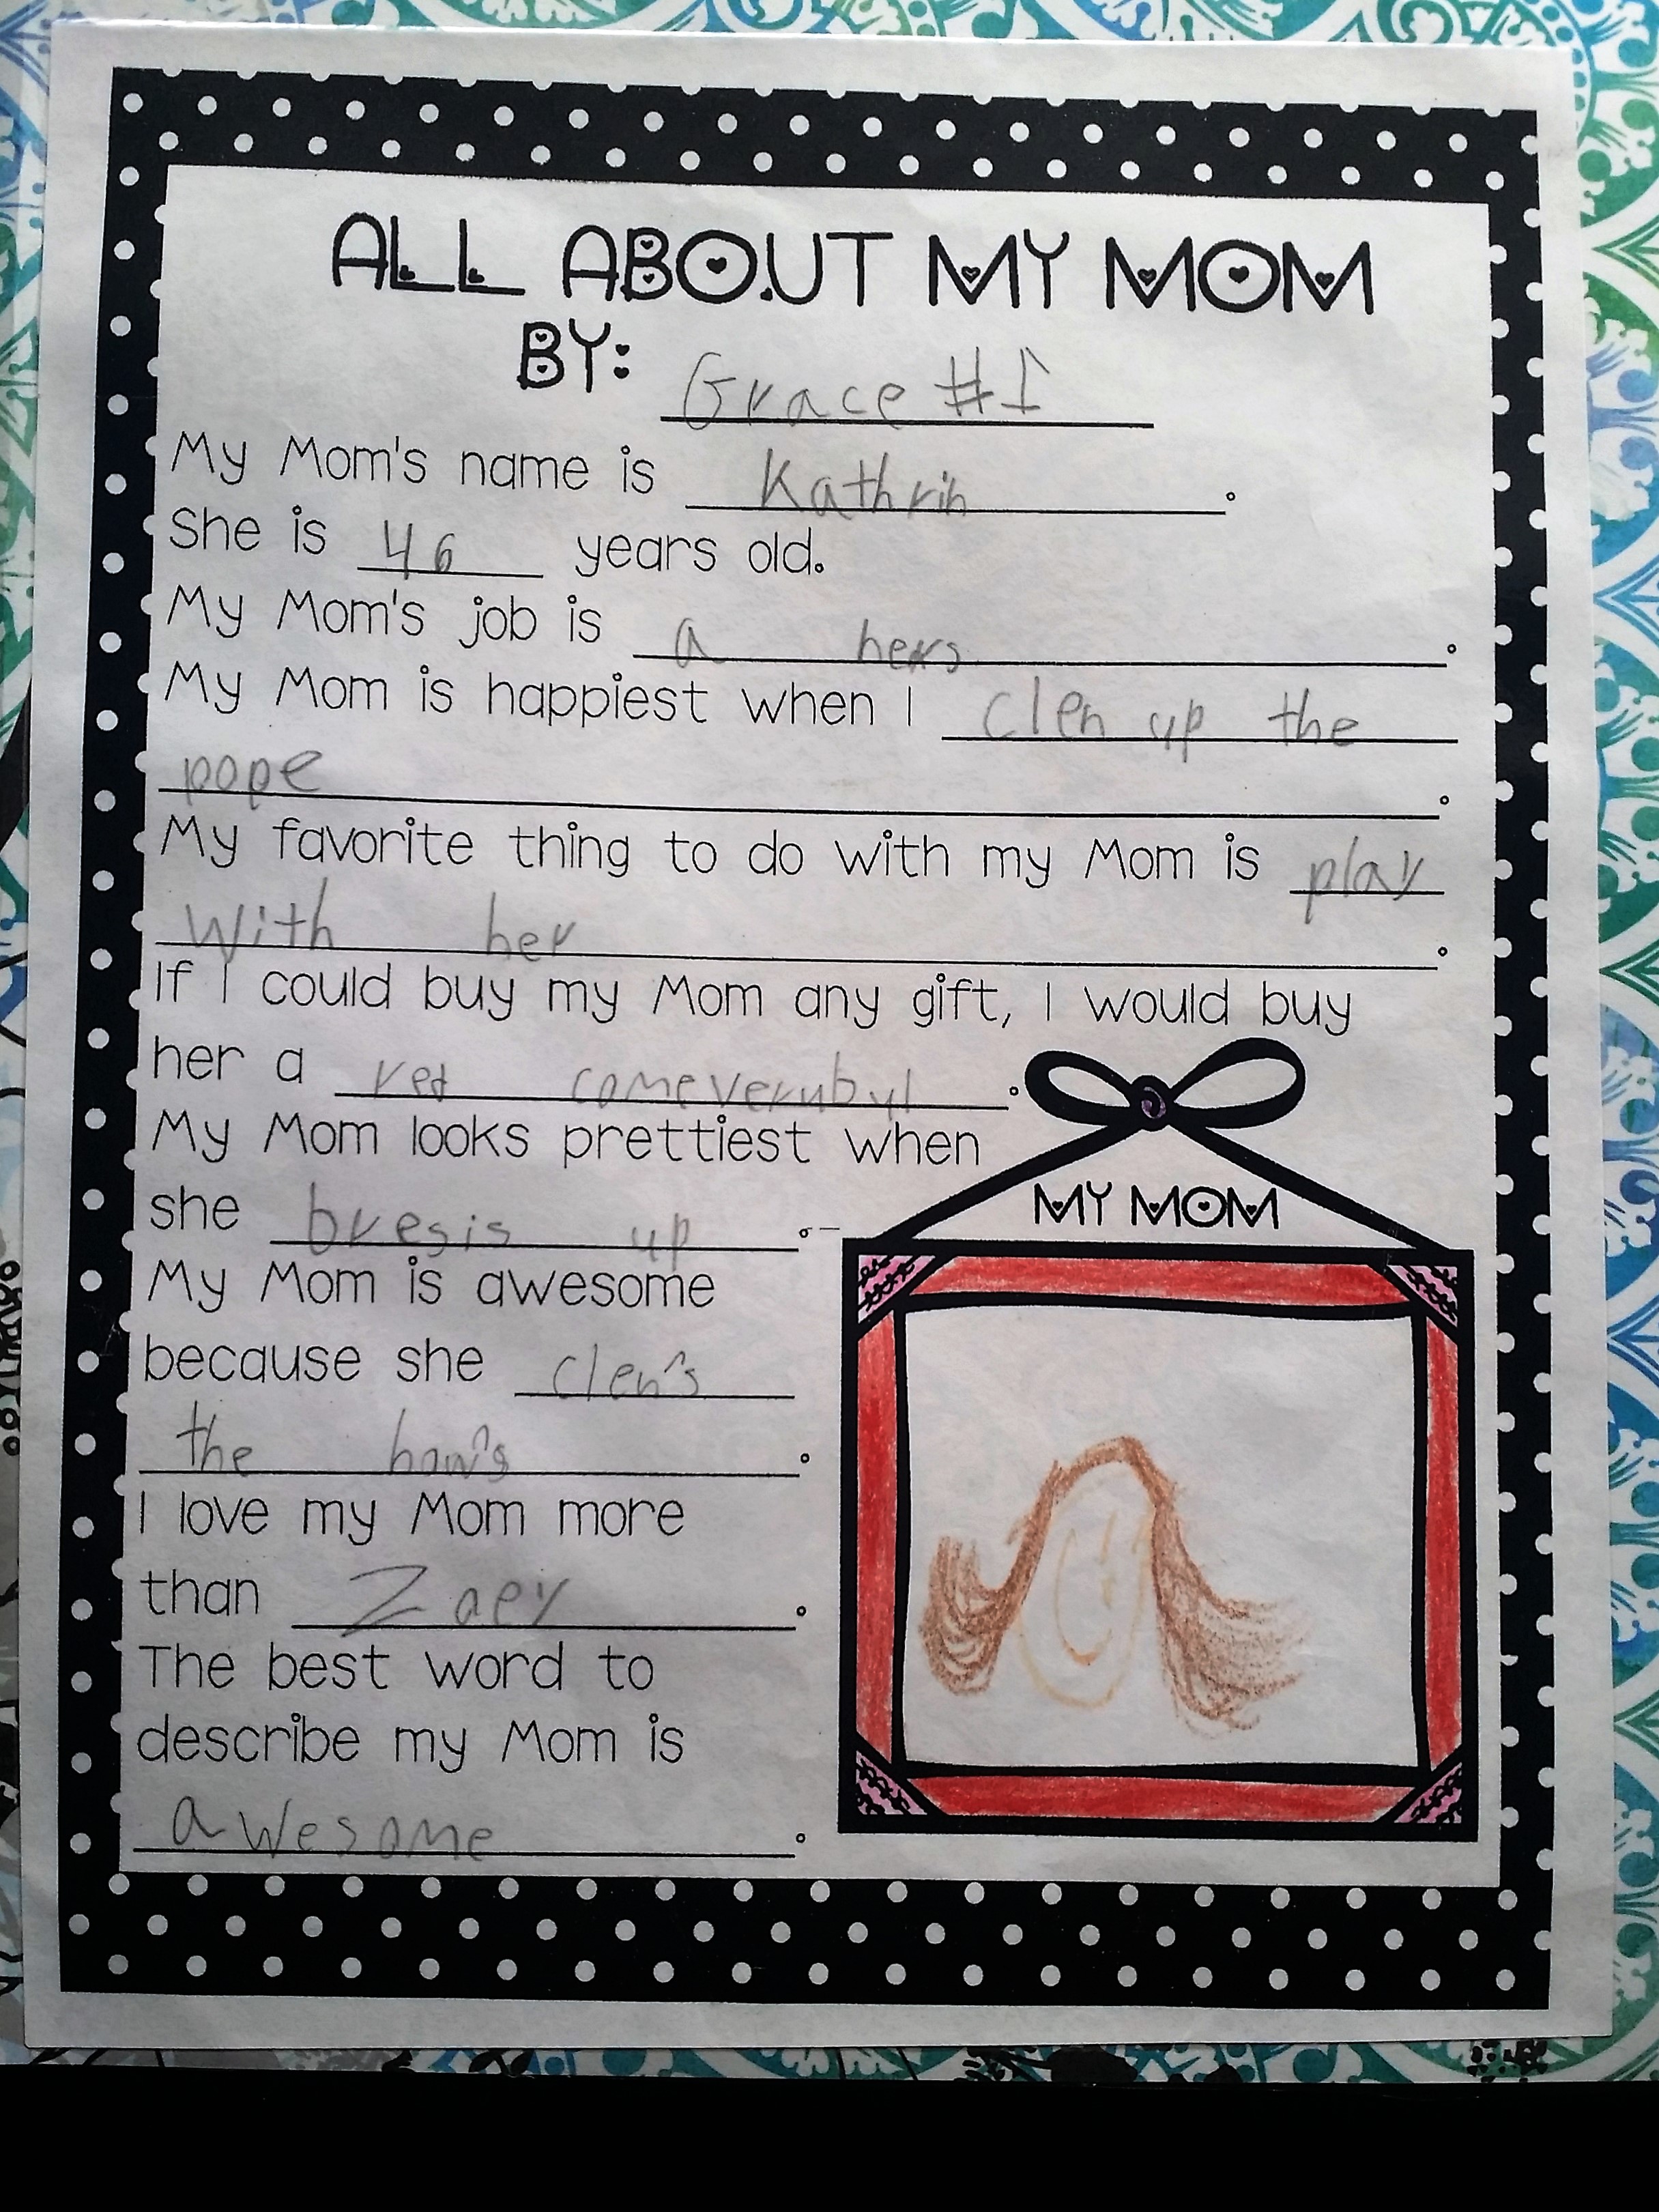 ALL ABOUT MY MOM
BY: Grace #1
My Mom's name is Kathrin.
She is 46 years old.
My Mom's job is a hers.
My Mom is happiest when I clen up the
pope.
My favorite thing to do with my Mom is play
With her.
If I could buy my Mom any gift, I would buy
her a red comeverubyl.
My Mom looks prettiest when
she bresis up.
My Mom is awesome
because she clen's
the haw's.
I love my Mom more
than Zoey.
The best word to
describe my Mom is
awesome.
MY MOM